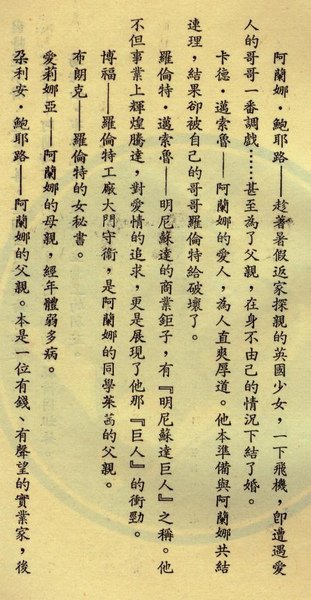 阿蘭娜・鮑耶路——趁著暑假返家探親的英國少女，一下飛機，卽遭遇愛
人的哥哥一番調戲……甚至為了父親，在身不由己的情況下結了婚。
卡德・邁索魯——阿蘭娜的愛人，為人直爽厚道。他本準備與阿蘭娜共結
連理，結果卻被自己的哥哥羅倫特給破壞了。
羅倫特・邁索魯——明尼蘇達的商業鉅子，有『明尼蘇達巨人』之稱。他
不但事業上輝煌騰達，對愛情的追求，更是展現了他那『巨人』的衝勁。
博福——羅倫特工廠大門守衛，是阿蘭娜的同學茱茜的父親。
布朗克——羅倫特的女秘書。
愛莉娜亞——阿蘭娜的母親，經年體弱多病。
朶利安・鮑耶路——阿蘭娜的父親。本是一位有錢、有聲望的實業家，後